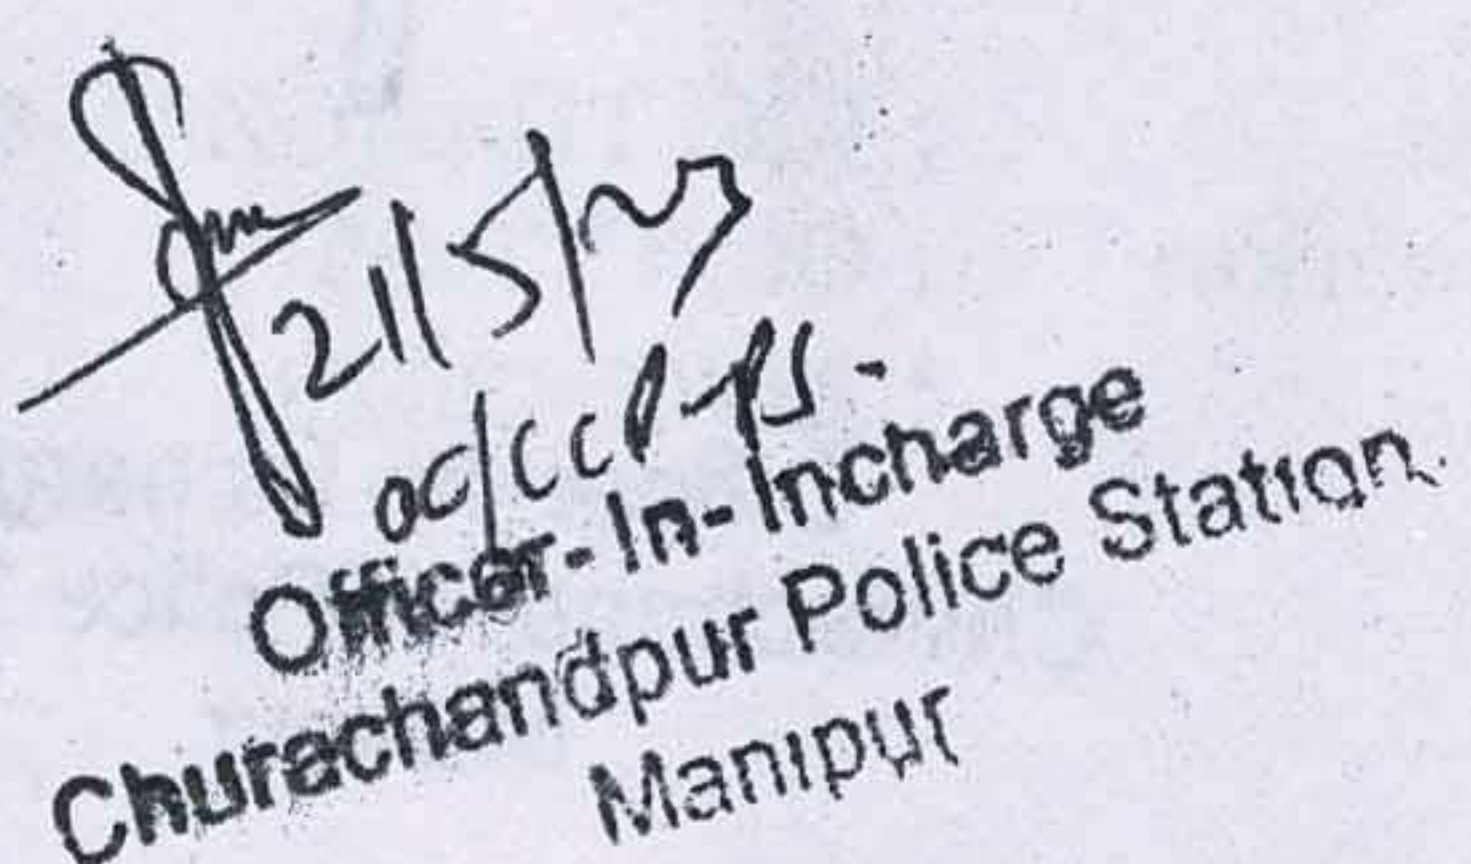 21/5/23
OC/CCP-PS.
Officer-In-Incharge
Churachandpur Police Station
Manipur